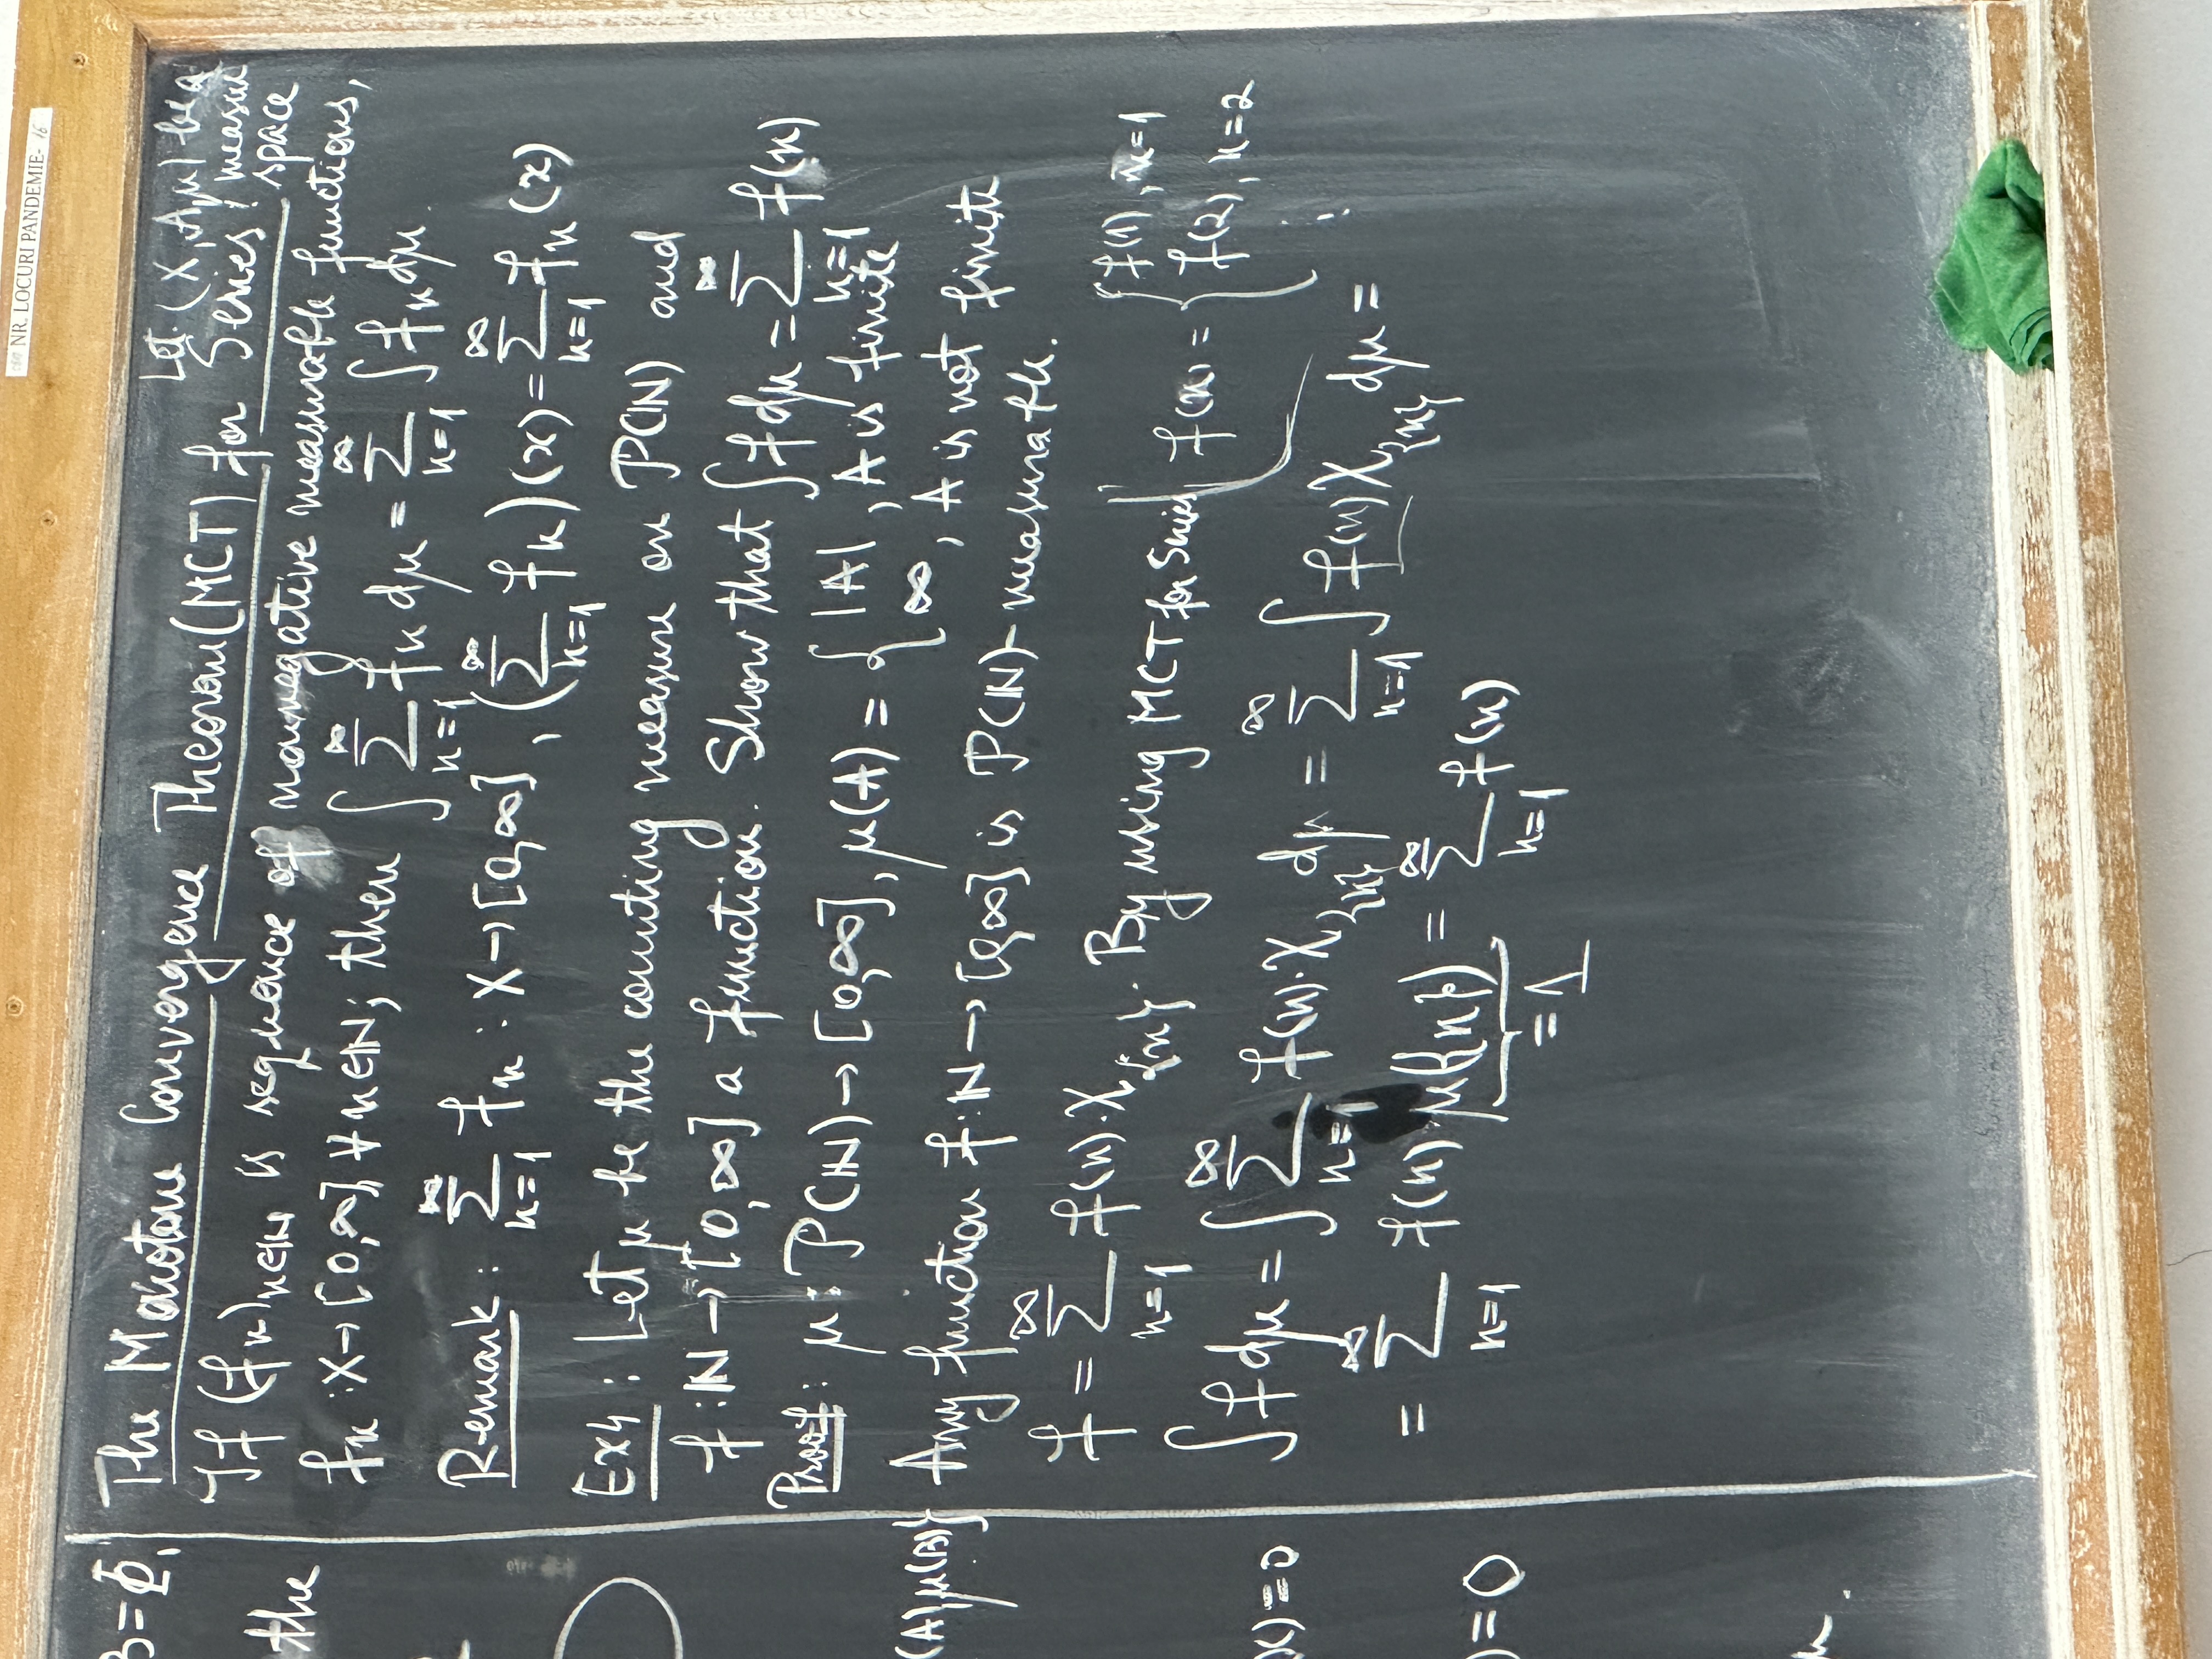 NR. LOCURI PANDEMIE- 16
B=Φ,
the
(A),μ(B)}
x)=0
)=0
μ.
The Monotone Convergence Theorem (MCT) for Series: Let (X,A,μ) be a measure space
If (fn)n∈ℕ is sequence of nonnegative measurable functions,
fn :X→[0,∞] ∀n∈ℕ; then ∫ ∑_{n=1}^∞ fn dμ = ∑_{n=1}^∞ ∫fn dμ.
Remark: ∑_{n=1}^∞ fn : X→[0,∞], (∑_{n=1}^∞ fn)(x)=∑_{n=1}^∞ fn(x)
Ex4: Let μ be the counting measure on P(ℕ) and
f:ℕ→[0,∞] a function. Show that ∫f dμ = ∑_{n=1}^∞ f(n)
Proof: μ: P(ℕ)→[0,∞], μ(A) = { |A| , A is finite
∞ , A is not finite
Any function f:ℕ→[0,∞] is P(ℕ)-measurable.
f = ∑_{n=1}^∞ f(n)·χ_{n}. By using MCT for Series
f(n) = { f(1), n=1
f(2), n=2
⋮
∫f dμ = ∫ ∑_{n=1}^∞ f(n)·χ_{n} dμ = ∑_{n=1}^∞ ∫ f(n) χ_{n} dμ =
= ∑_{n=1}^∞ f(n) μ({n}) = ∑_{n=1}^∞ f(n)
=1